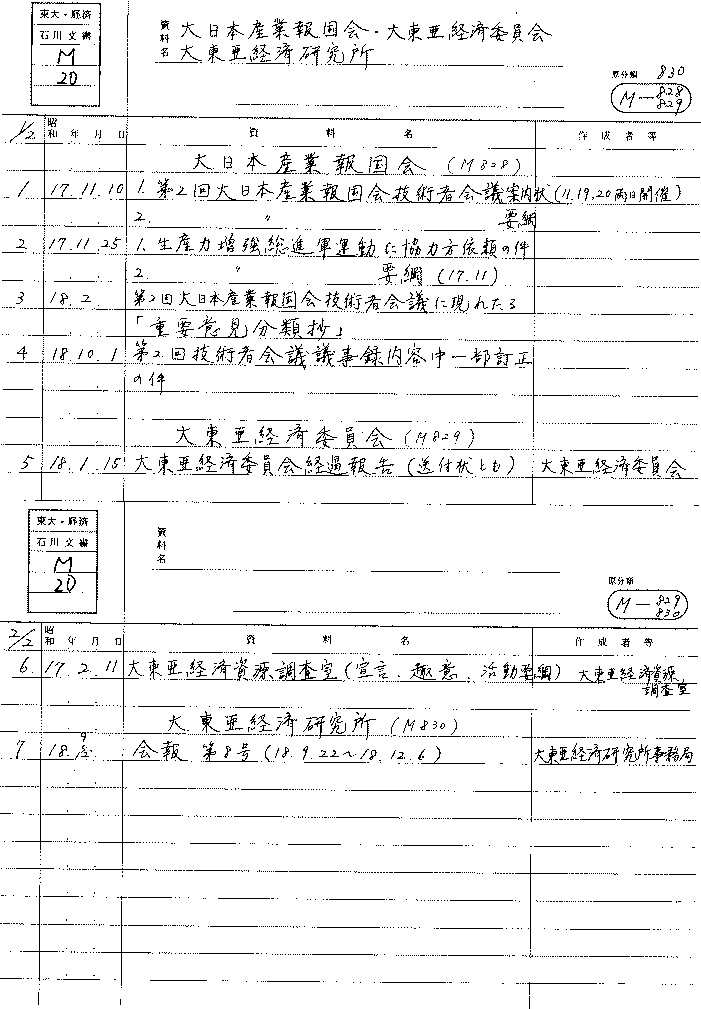 東大・経済
石川文書
M
20
資料名 大日本産業報国会・大東亜経済委員会
大東亜経済研究所
原分類 830
M-828
829
1/2 昭和 年 月 日 資料名 作成者等
大日本産業報国会 (M828)
1 17.11.10 1. 第2回大日本産業報国会技術者会議案内状(11.19,20両日開催)
2. 〃 要綱
2 17.11.25 1. 生産力増強総進軍運動に協力方依頼の件
2 〃 要綱 (17.11)
3 18.2. 第2回大日本産業報国会技術者会議に現れたる
「重要意見分類抄」
4 18.10.1 第2回技術者会議議事録内容中一部訂正
の件
大東亜経済委員会 (M829)
5 18.1.15 大東亜経済委員会経過報告 (送付状とも) 大東亜経済委員会
東大・経済
石川文書
M
20
資料名
原分類
M-829
830
2/2 昭和 年 月 日 資料名 作成者等
6. 17.2.11 大東亜経済資源調査室(宣言、趣意、活動要綱) 大東亜経済資源
調査室
大東亜経済研究所 (M830)
7 18.9 会報 第8号 (18.9.22〜18.12.6) 大東亜経済研究所事務局